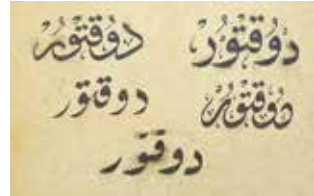 دوقتور دوقتور
دوقتور دوقتور
دوقتور